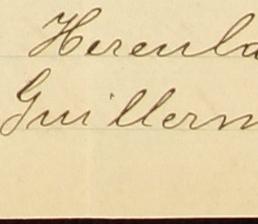 Herenla
Guillerm